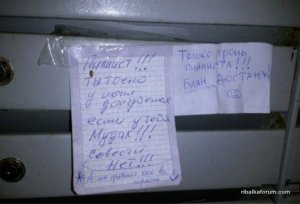 Пианист!!!
ты точно
у меня
доиграешся
если у тебя
Мудак!!!
совести
НЕТ!!!
А он играет как
Только тронь
пианиста!!!
Баян достану
ribalkaforum.com